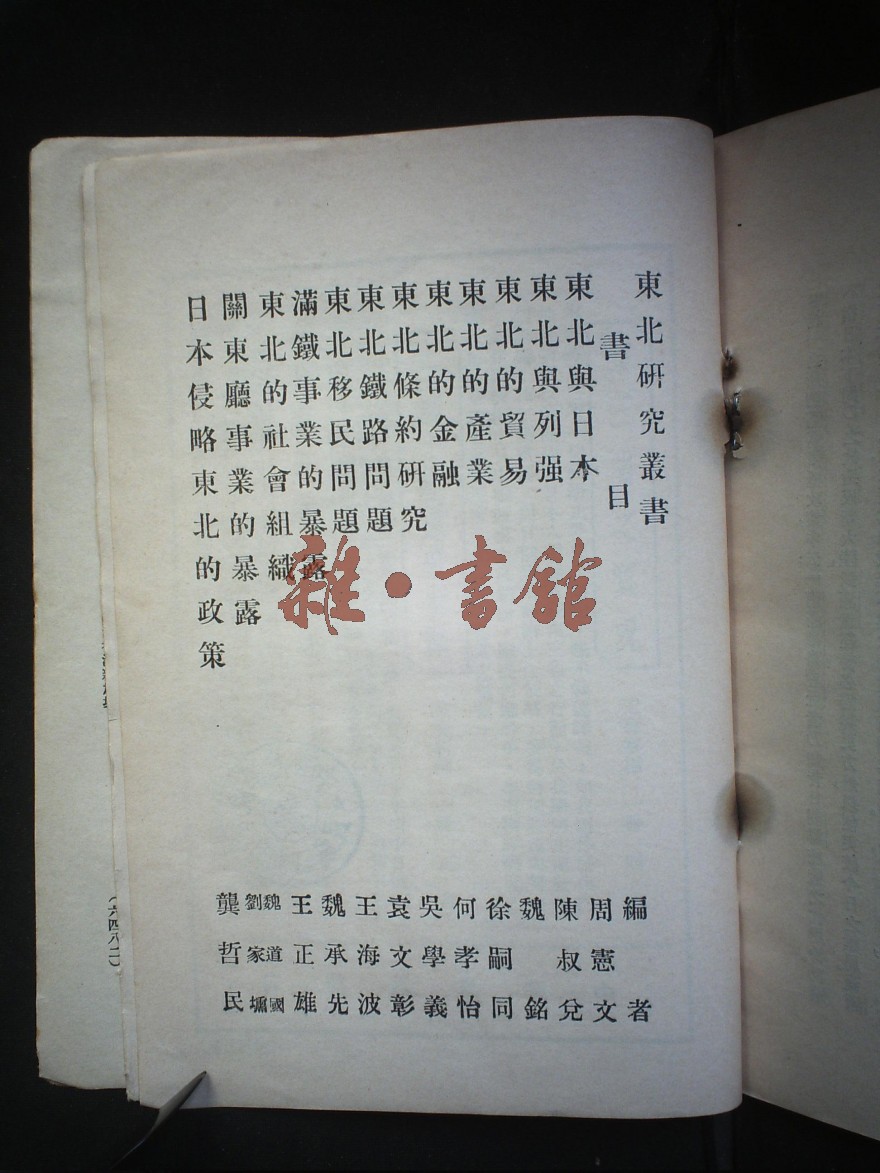 東北研究叢書
書目 編者
東北與日本 周憲文
東北與列强 陳叔兌
東北的貿易 魏銘
東北的產業 徐嗣同
東北的金融 何孝怡
東北條約研究 吳學義
東北鐵路問題 袁文彰
東北移民問題 王海波
滿鐵事業的暴露 魏承先
東北的社會組織 王正雄
關東廳事業的暴露 魏道國 劉家壎
日本侵略東北的政策 龔哲民
(六四八二)
雜·書館